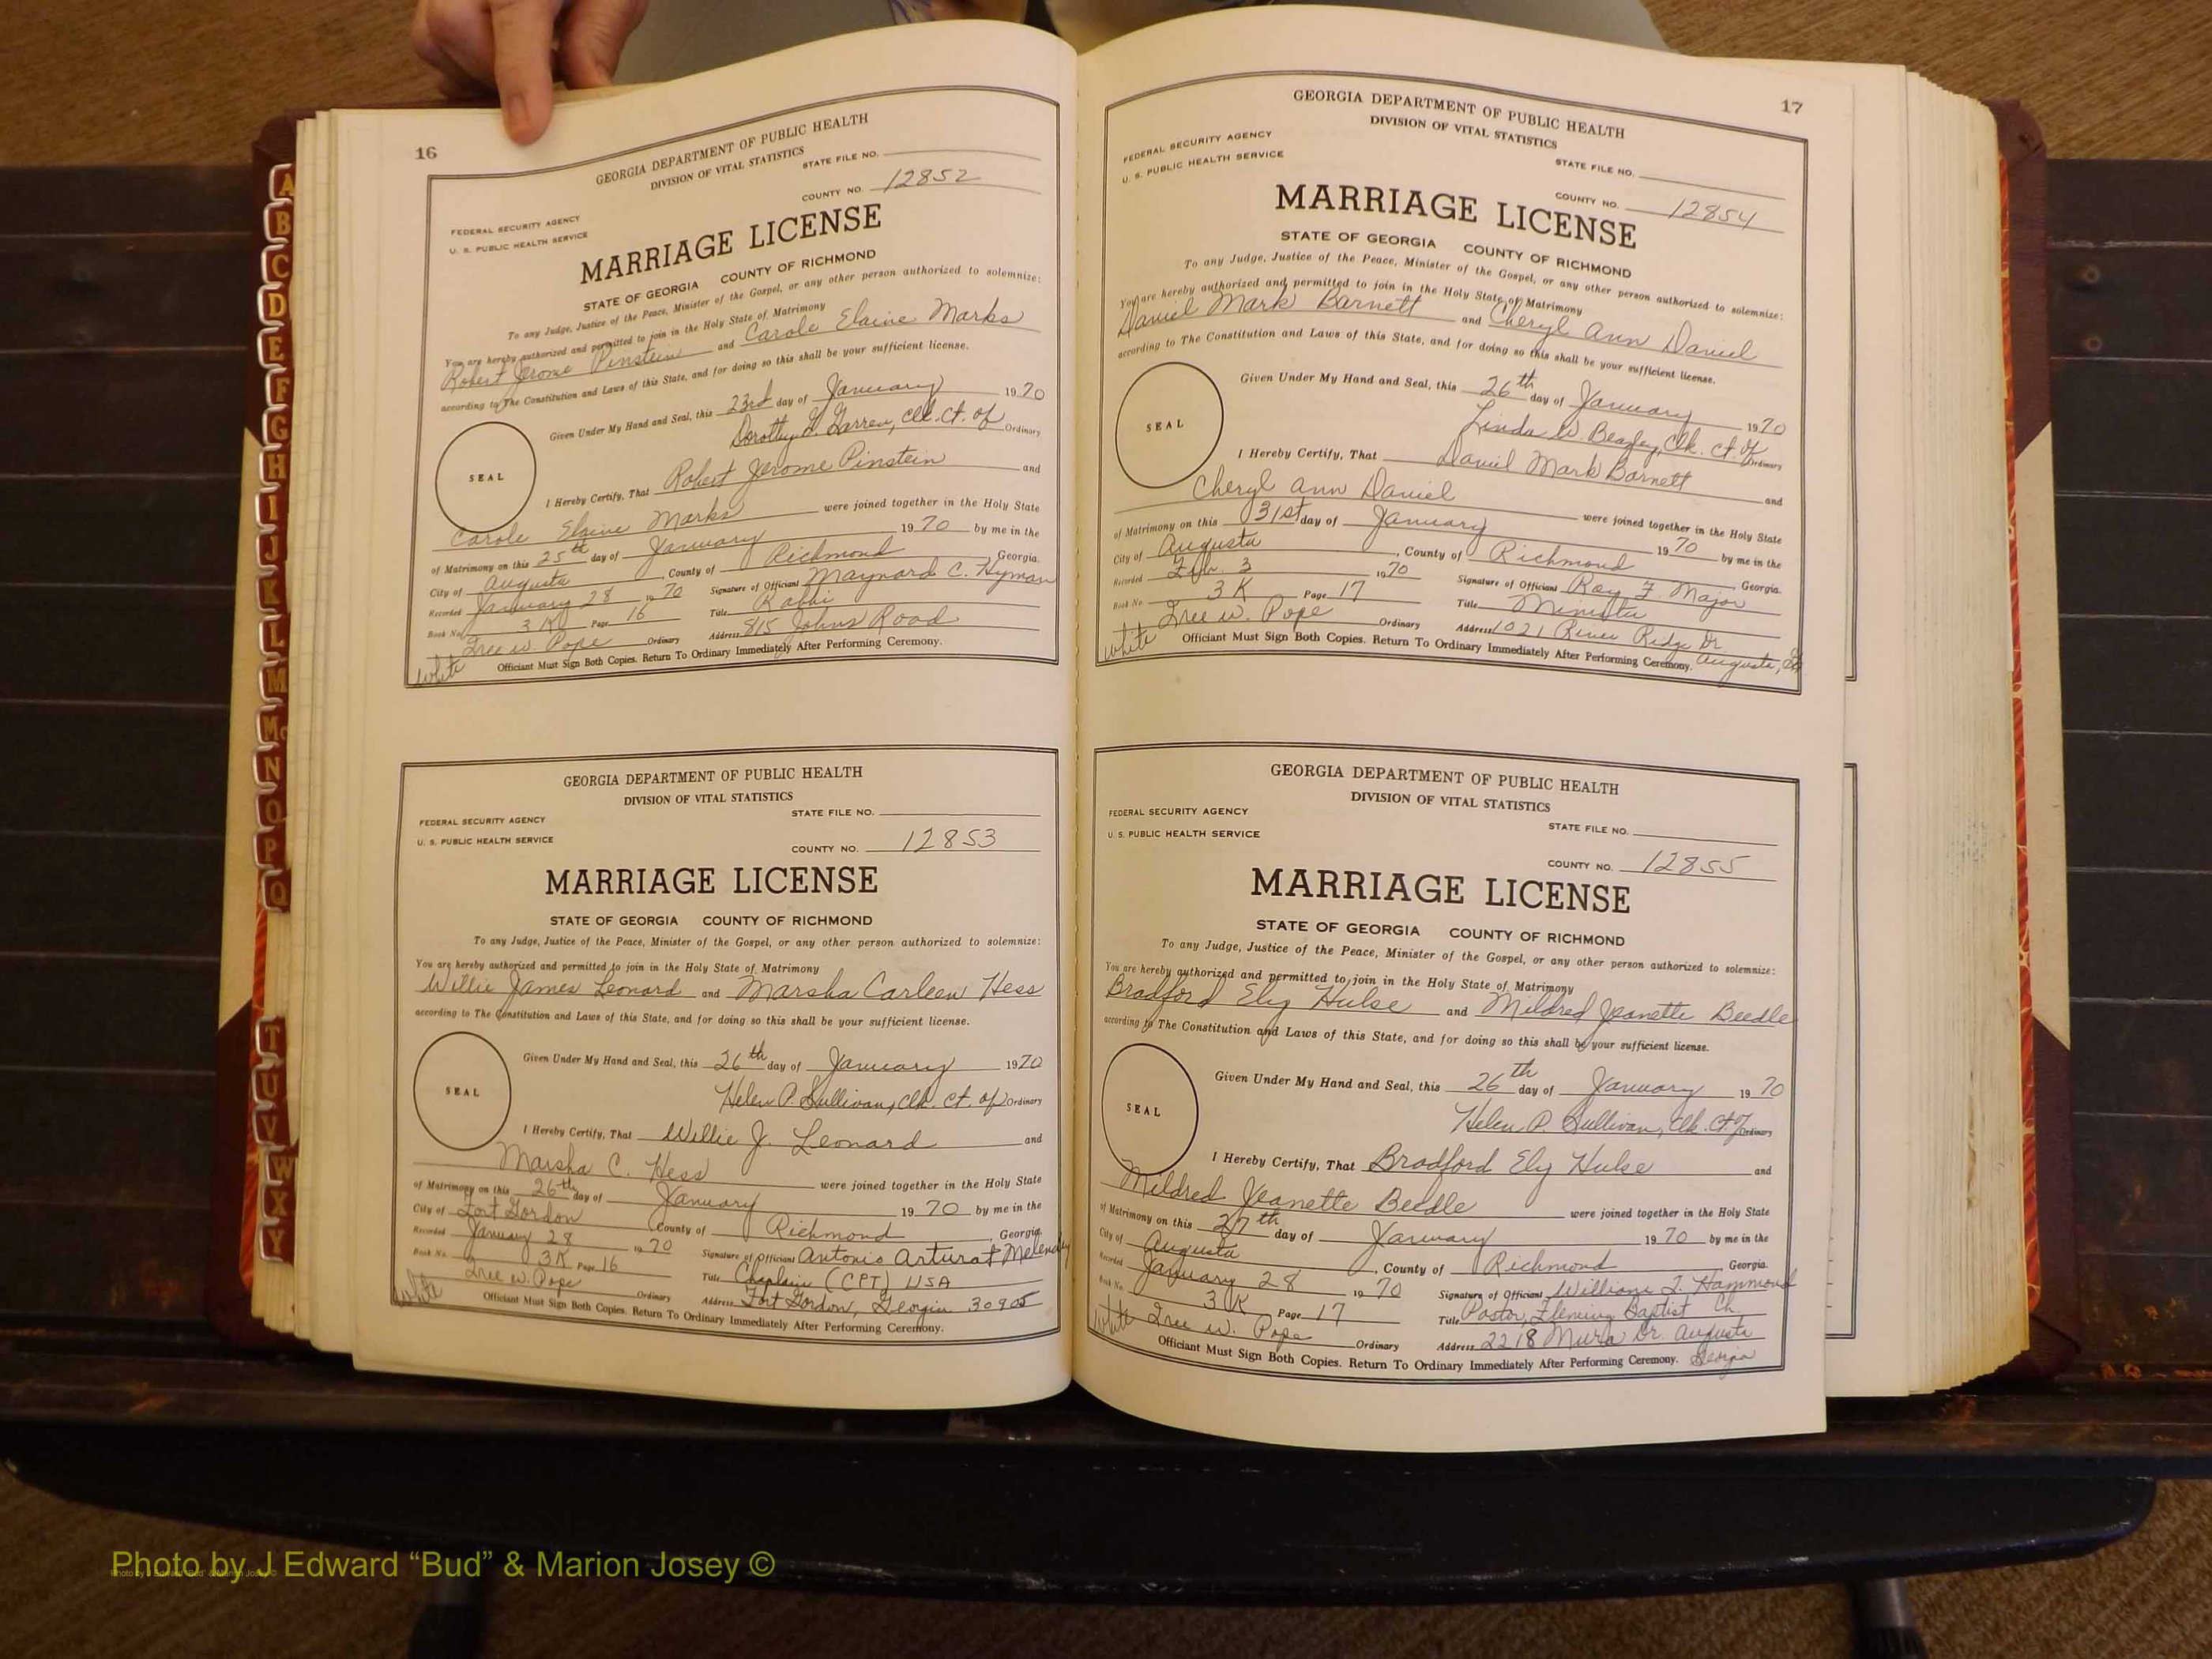 16
GEORGIA DEPARTMENT OF PUBLIC HEALTH
DIVISION OF VITAL STATISTICS
STATE FILE NO.
COUNTY NO. 12852
FEDERAL SECURITY AGENCY
U. S. PUBLIC HEALTH SERVICE
MARRIAGE LICENSE
STATE OF GEORGIA COUNTY OF RICHMOND
To any Judge, Justice of the Peace, Minister of the Gospel, or any other person authorized to solemnize:
You are hereby authorized and permitted to join in the Holy State of Matrimony
Robert Jerome Pinstein and Carole Elaine Marks
according to The Constitution and Laws of this State, and for doing so this shall be your sufficient license.
Given Under My Hand and Seal, this 23rd day of January 1970
Dorothy Clk. Ct. of Ordinary
SEAL
I Hereby Certify, That Robert Jerome Pinstein and
Carole Elaine Marks were joined together in the Holy State
of Matrimony on this 25th day of January 1970 by me in the
City of Augusta, County of Richmond, Georgia.
Recorded January 28 1970 Signature of Officiant Maynard C. Hyman
Book No. 3K Page 16 Title Rabbi
W. Pope Ordinary Address 815 Johns Road
white Officiant Must Sign Both Copies. Return To Ordinary Immediately After Performing Ceremony.
GEORGIA DEPARTMENT OF PUBLIC HEALTH
DIVISION OF VITAL STATISTICS
STATE FILE NO.
FEDERAL SECURITY AGENCY
U. S. PUBLIC HEALTH SERVICE
COUNTY NO. 12853
MARRIAGE LICENSE
STATE OF GEORGIA COUNTY OF RICHMOND
To any Judge, Justice of the Peace, Minister of the Gospel, or any other person authorized to solemnize:
You are hereby authorized and permitted to join in the Holy State of Matrimony
Willie James Leonard and Marsha Carleen Hess
according to The Constitution and Laws of this State, and for doing so this shall be your sufficient license.
Given Under My Hand and Seal, this 26th day of January 1970
Helen P. Sullivan, Clk. Ct. of Ordinary
SEAL
I Hereby Certify, That Willie J. Leonard and
Marsha C. Hess were joined together in the Holy State
of Matrimony on this 26th day of January 1970 by me in the
City of Fort Gordon County of Richmond, Georgia.
Recorded January 28 1970 Signature of Officiant Antonio
Book No. 3K Page 16 Title Chaplain (CPT) USA
W. Pope Ordinary Address Fort Gordon, Georgia 30905
white Officiant Must Sign Both Copies. Return To Ordinary Immediately After Performing Ceremony.
17
GEORGIA DEPARTMENT OF PUBLIC HEALTH
DIVISION OF VITAL STATISTICS
FEDERAL SECURITY AGENCY
U. S. PUBLIC HEALTH SERVICE
STATE FILE NO.
COUNTY NO. 12854
MARRIAGE LICENSE
STATE OF GEORGIA COUNTY OF RICHMOND
To any Judge, Justice of the Peace, Minister of the Gospel, or any other person authorized to solemnize:
You are hereby authorized and permitted to join in the Holy State of Matrimony
Daniel Mark Barnett and Cheryl Ann Daniel
according to The Constitution and Laws of this State, and for doing so this shall be your sufficient license.
Given Under My Hand and Seal, this 26th day of January 1970
Linda W. Beazley, Clk. Ct. of Ordinary
SEAL
I Hereby Certify, That Daniel Mark Barnett and
Cheryl Ann Daniel were joined together in the Holy State
of Matrimony on this 31st day of January 1970 by me in the
City of Augusta, County of Richmond, Georgia.
Recorded Feb. 3 1970 Signature of Officiant Ray F. Major
Book No. 3K Page 17 Title Minister
W. Pope Ordinary Address 1021 River Ridge Dr.
white Officiant Must Sign Both Copies. Return To Ordinary Immediately After Performing Ceremony. Augusta, Ga
GEORGIA DEPARTMENT OF PUBLIC HEALTH
DIVISION OF VITAL STATISTICS
FEDERAL SECURITY AGENCY
U. S. PUBLIC HEALTH SERVICE
STATE FILE NO.
COUNTY NO. 12855
MARRIAGE LICENSE
STATE OF GEORGIA COUNTY OF RICHMOND
To any Judge, Justice of the Peace, Minister of the Gospel, or any other person authorized to solemnize:
You are hereby authorized and permitted to join in the Holy State of Matrimony
Bradford Ely Hulse and Mildred Jeanette Beedle
according to The Constitution and Laws of this State, and for doing so this shall be your sufficient license.
Given Under My Hand and Seal, this 26th day of January 1970
Helen P. Sullivan, Clk. Ct. of Ordinary
SEAL
I Hereby Certify, That Bradford Ely Hulse and
Mildred Jeanette Beedle were joined together in the Holy State
of Matrimony on this 27th day of January 1970 by me in the
City of Augusta, County of Richmond Georgia.
Recorded January 28 1970 Signature of Officiant William Hammond
Book No. 3K Page 17 Title Pastor, Fleming Baptist Ch.
white W. Pope Ordinary Address 2218 Mura Dr. Augusta
Officiant Must Sign Both Copies. Return To Ordinary Immediately After Performing Ceremony. Georgia
A
B
C
D
E
F
G
H
I
J
K
L
M
Mc
N
O
P
Q
T
U
V
W
X
Y
Photo by J Edward “Bud” & Marion Josey ©